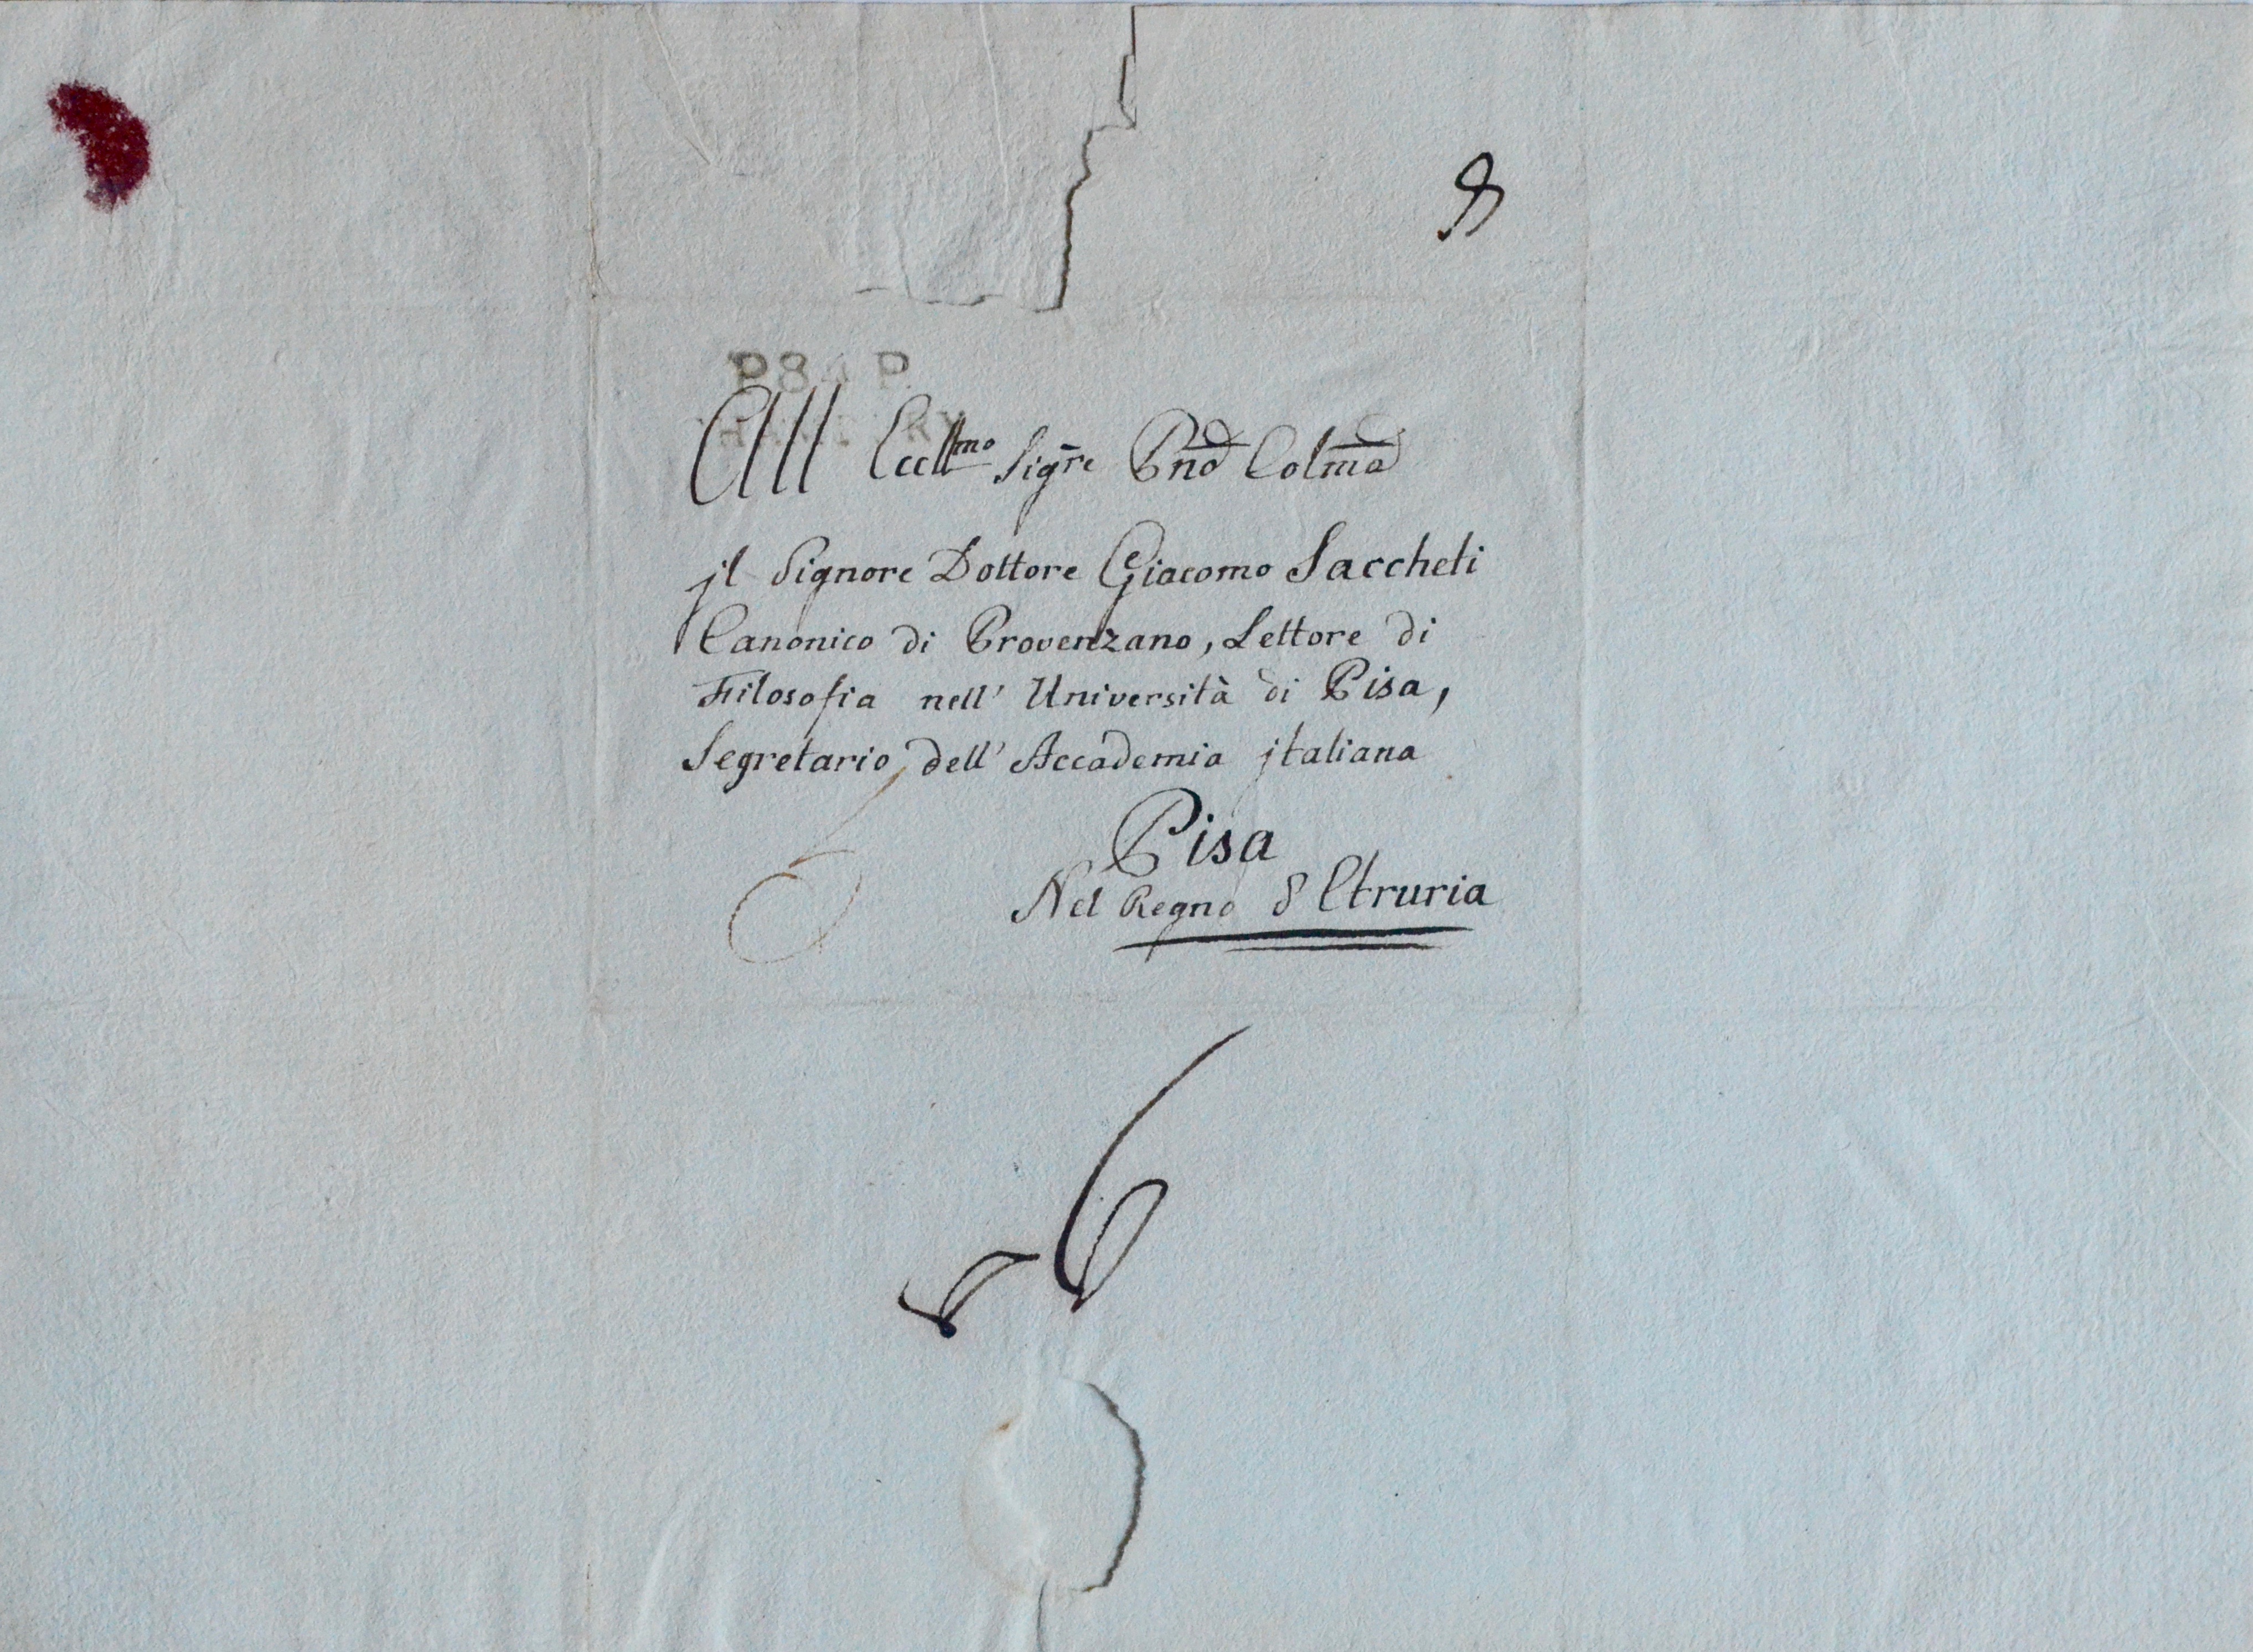 8
P84P
All Eccllmo Sigre Pnō Colmō
jl Signore Dottore Giacomo Saccheti
Canonico di Provenzano, Lettore di
Filosofia nell' Università di Pisa,
Segretario dell' Accademia jtaliana
Pisa
Nel Regno d Etruria
6